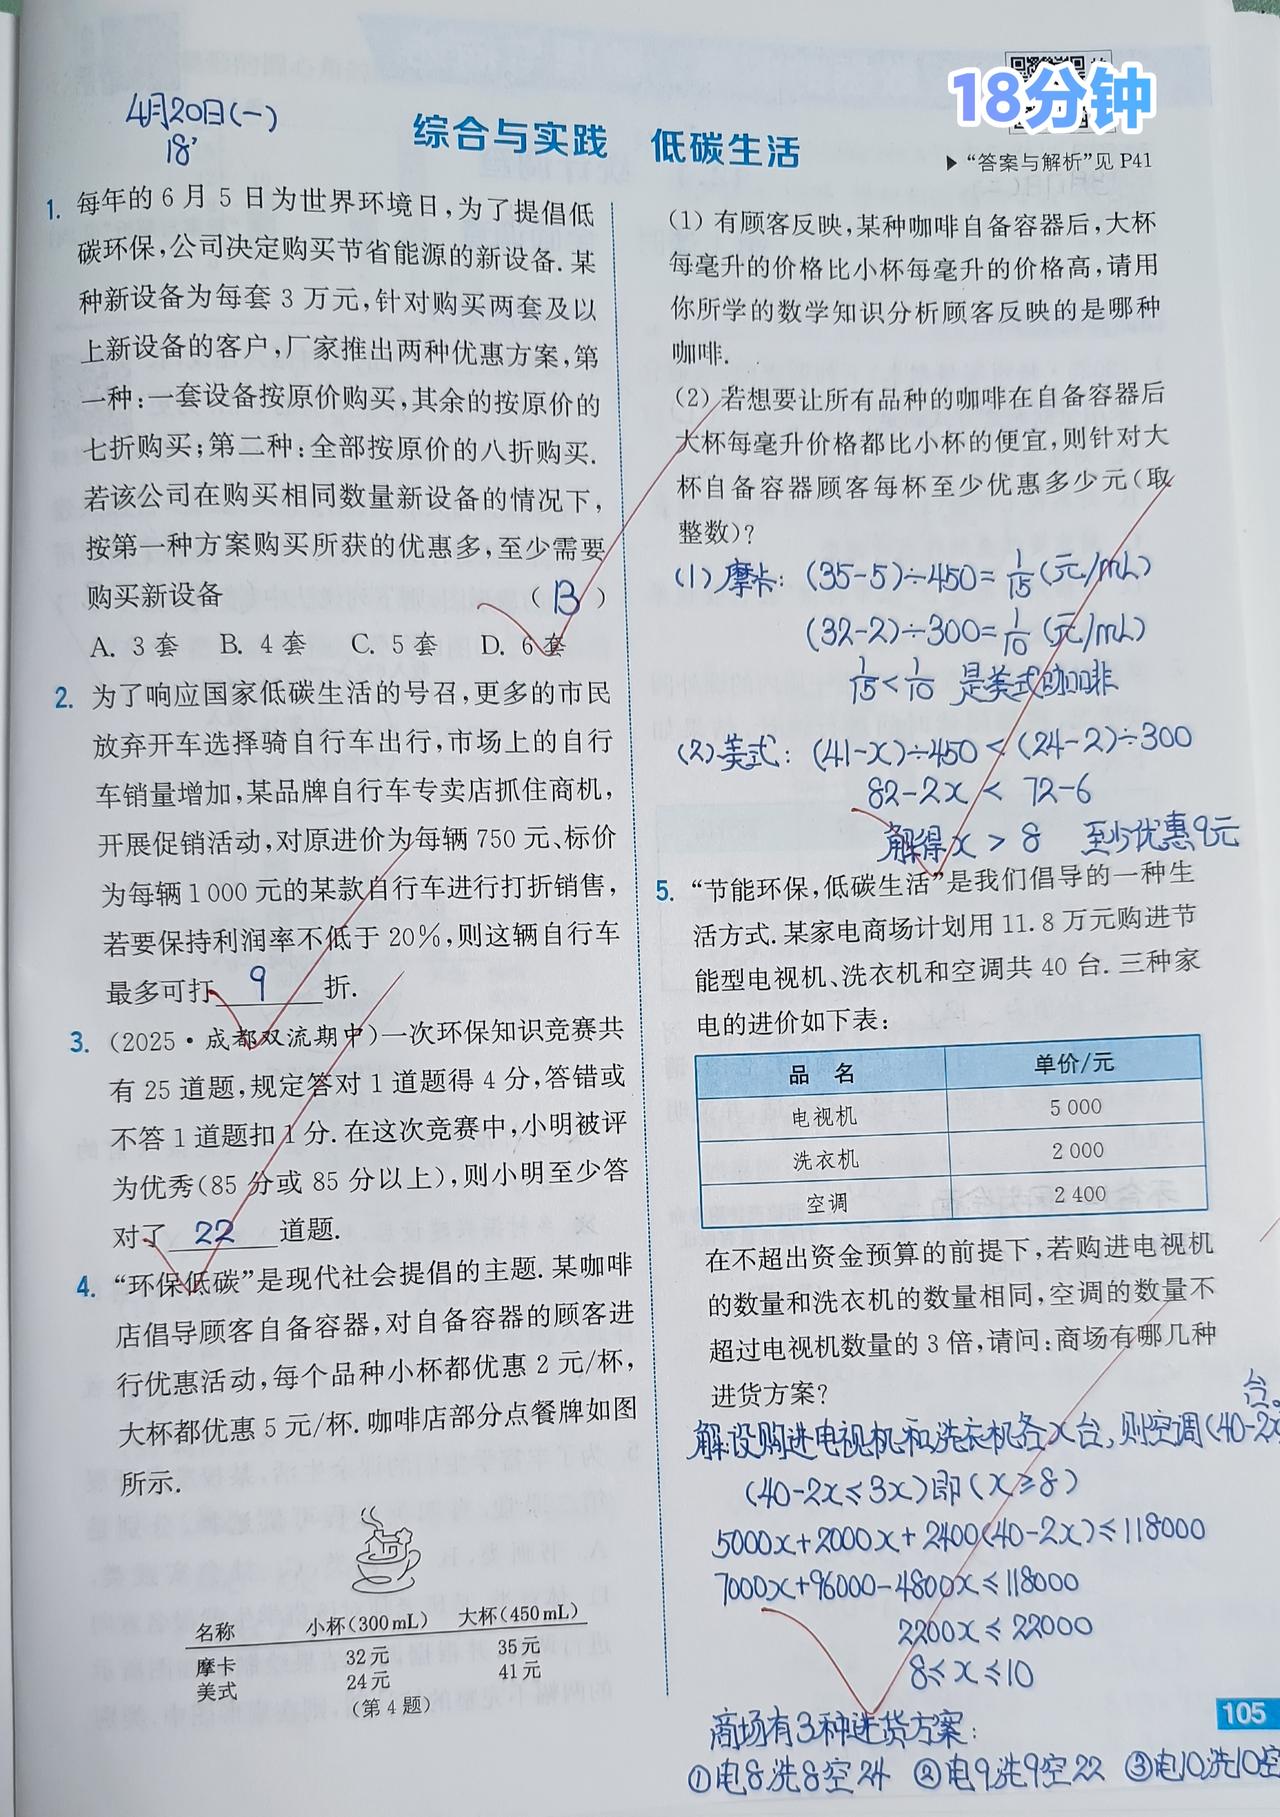 4月20日(一)
18'
18分钟
综合与实践 低碳生活
▶“答案与解析”见 P41
1. 每年的 6 月 5 日为世界环境日,为了提倡低
碳环保,公司决定购买节省能源的新设备. 某
种新设备为每套 3 万元,针对购买两套及以
上新设备的客户,厂家推出两种优惠方案,第
一种:一套设备按原价购买,其余的按原价的
七折购买;第二种:全部按原价的八折购买.
若该公司在购买相同数量新设备的情况下,
按第一种方案购买所获的优惠多,至少需要
购买新设备 ( B )
A. 3 套 B. 4 套 C. 5 套 D. 6 套
2. 为了响应国家低碳生活的号召,更多的市民
放弃开车选择骑自行车出行,市场上的自行
车销量增加,某品牌自行车专卖店抓住商机,
开展促销活动,对原进价为每辆 750 元、标价
为每辆 1 000 元的某款自行车进行打折销售,
若要保持利润率不低于 20%,则这辆自行车
最多可打 9 折.
3. (2025·成都双流期中)一次环保知识竞赛共
有 25 道题,规定答对 1 道题得 4 分,答错或
不答 1 道题扣 1 分. 在这次竞赛中,小明被评
为优秀(85 分或 85 分以上),则小明至少答
对了 22 道题.
4. “环保低碳”是现代社会提倡的主题. 某咖啡
店倡导顾客自备容器,对自备容器的顾客进
行优惠活动,每个品种小杯都优惠 2 元/杯,
大杯都优惠 5 元/杯. 咖啡店部分点餐牌如图
所示.
名称 小杯(300 mL) 大杯(450 mL)
摩卡 32元 35元
美式 24元 41元
(第 4 题)
(1) 有顾客反映,某种咖啡自备容器后,大杯
每毫升的价格比小杯每毫升的价格高,请用
你所学的数学知识分析顾客反映的是哪种
咖啡.
(2) 若想要让所有品种的咖啡在自备容器后
大杯每毫升价格都比小杯的便宜,则针对大
杯自备容器顾客每杯至少优惠多少元(取
整数)?
(1) 摩卡: (35-5)÷450=1/15(元/mL)
(32-2)÷300=1/10 (元/mL)
1/15<1/10 是美式咖啡
(2)美式: (41-x)÷450<(24-2)÷300
82-2x < 72-6
解得x > 8 至少优惠9元
5. “节能环保,低碳生活”是我们倡导的一种生
活方式. 某家电商场计划用 11.8 万元购进节
能型电视机、洗衣机和空调共 40 台. 三种家
电的进价如下表:
品 名 单价/元
电视机 5 000
洗衣机 2 000
空调 2 400
在不超出资金预算的前提下,若购进电视机
的数量和洗衣机的数量相同,空调的数量不
超过电视机数量的 3 倍,请问:商场有哪几种
进货方案?
台。
解:设购进电视机和洗衣机各x台,则空调(40-2x
(40-2x≤3x)即(x≥8)
5000x+2000x+2400(40-2x)≤118000
7000x+96000-4800x≤118000
2200x≤22000
8≤x≤10
商场有3种进货方案:
①电8洗8空24 ②电9洗9空22 ③电10洗10空
105